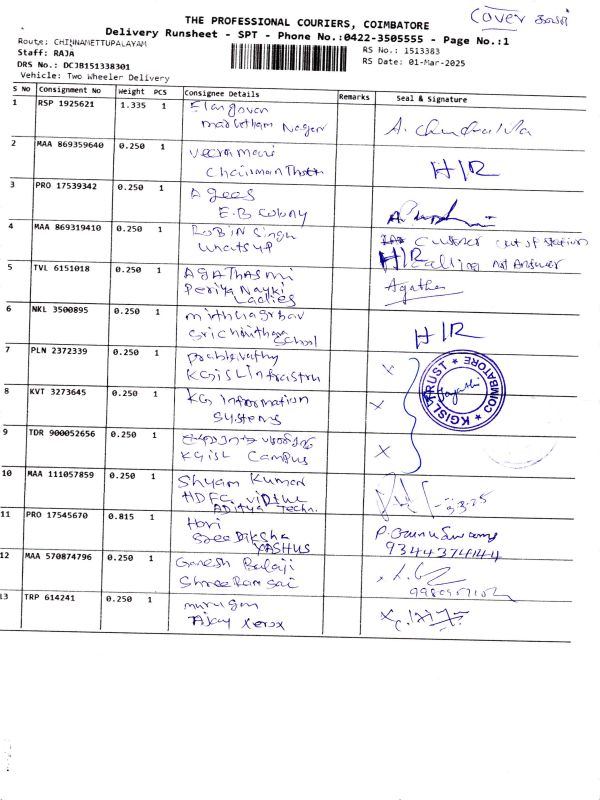 Cover
THE PROFESSIONAL COURIERS, COIMBATORE
Delivery Runsheet - SPT - Phone No.:0422-3505555 - Page No.:1
Route: CHINNAMETTUPALAYAM
Staff: RAJA
DRS No.: DCJB151338301
Vehicle: Two Wheeler Delivery
RS No.: 1513383
RS Date: 01-Mar-2025
S No Consignment No Weight PCS Consignee Details Remarks Seal & Signature
1 RSP 1925621 1.335 1 Elangovan
Nagar
2 MAA 869359640 0.250 PC
Chairman
H/R
3 PRO 17539342 0.250 1 Agees
E.B Colony
4 MAA 869319410 0.250 1 ROBIN Singh
whatsup
out of station
H/R calling not Answer
5 TVL 6151018 0.250 1 AGATHASMI
Periya Nayki
Ladies
Agatha
6 NKL 3500895 0.250 1
School
H/R
7 PLN 2372339 0.250 1
KGISL Infrastru
X
8 KVT 3273645 0.250 1 KG Information
Systems
X
KGISL TRUST * COIMBATORE *
9 TDR 900052656 0.250 1
KGISL Campus
X
10 MAA 111057859 0.250 1 Shyam Kumar
HDFC Virtue
Aditya Techn.
3.3.25
11 PRO 17545670 0.815 1 Hari
Sree Diksha
YASHUS
9344374144
12 MAA 570874796 0.250 1 Ganesh Balaji
Shree Ram Sai
13 TRP 614241 0.250 1 murugan
Ajay xerox